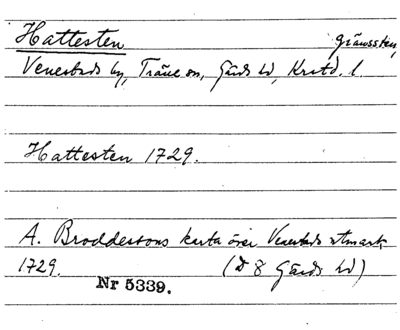 Hattesten gränssten,
Venestads by, Träne sn, Gärds hd, Krstd. l.
Hattesten 1729.
A. Broddessons karta över Venestads utmark
1729. (D 8 Gärds hd)
Nr 5339.